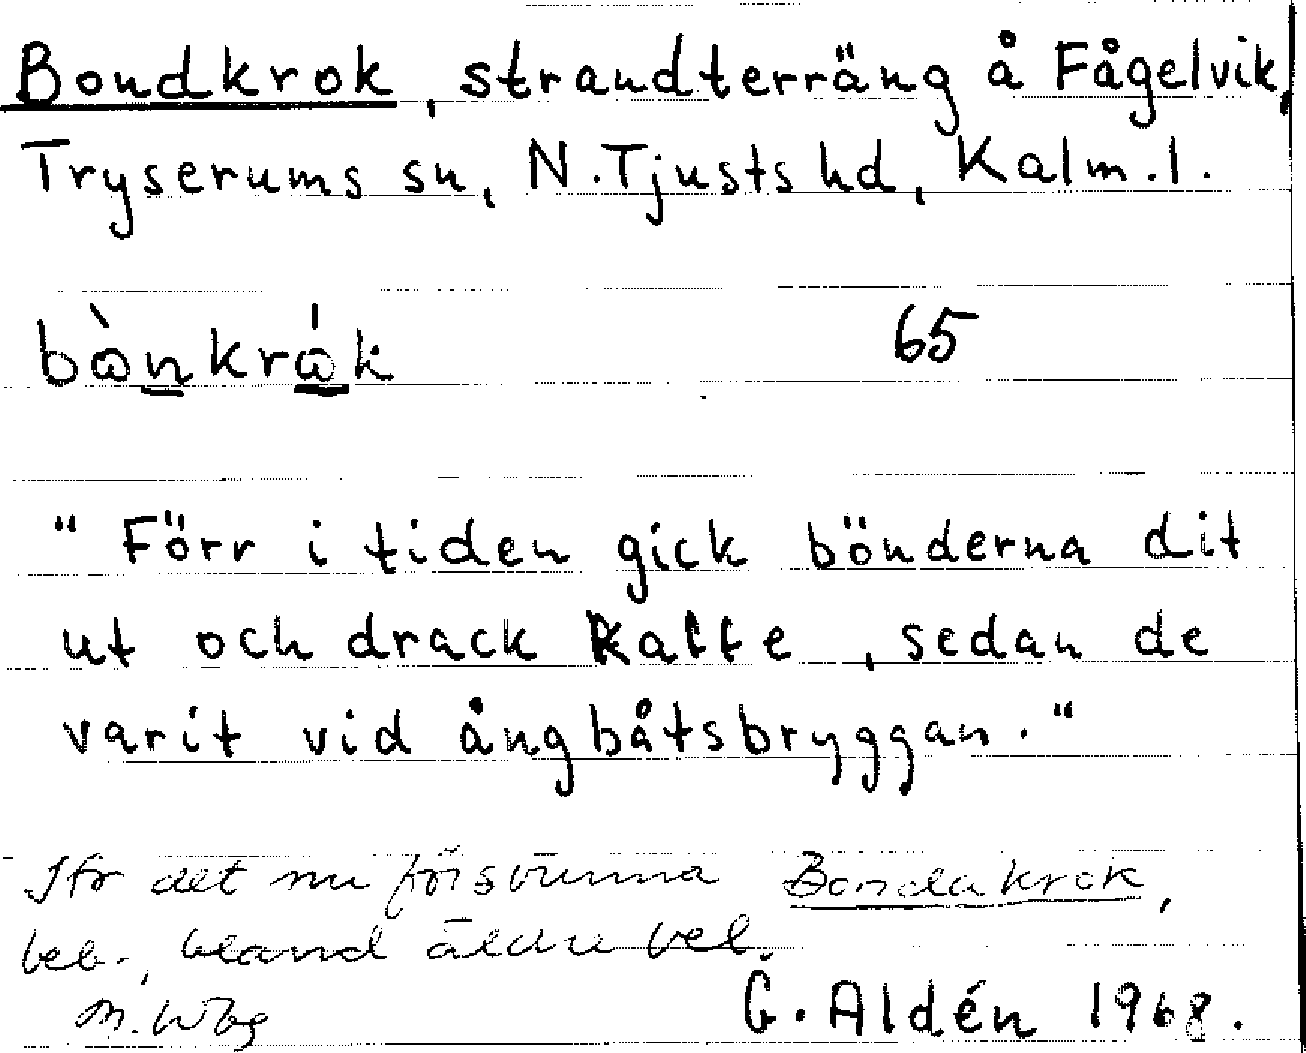 Bondkrok, strandterräng å Fågelvik,
Tryserums sn, N.Tjusts hd, Kalm.l.
bònkråk 65
"Förr i tiden gick bönderna dit
ut och drack kaffe, sedan de
varit vid ångbåtsbryggan."
Jfr det nu försvunna Bondakrok,
beb., bland äldre bel.
M. Wbg
G. Aldén 1968.